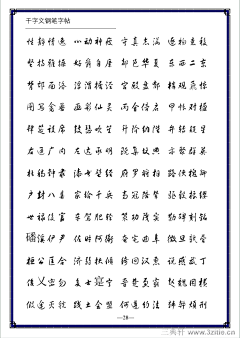 千字文钢笔字帖
性静情逸 心动神疲 守真志满 逐物意移
坚持雅操 好爵自縻 都邑华夏 东西二京
背邙面洛 浮渭据泾 宫殿盘郁 楼观飞惊
图写禽兽 画彩仙灵 丙舍傍启 甲帐对楹
肆筵设席 鼓瑟吹笙 升阶纳陛 弁转疑星
右通广内 左达承明 既集坟典 亦聚群英
杜稿钟隶 漆书壁经 府罗将相 路侠槐卿
户封八县 家给千兵 高冠陪辇 驱毂振缨
世禄侈富 车驾肥轻 策功茂实 勒碑刻铭
磻溪伊尹 佐时阿衡 奄宅曲阜 微旦孰营
桓公匡合 济弱扶倾 绮回汉惠 说感武丁
俊乂密勿 多士寔宁 晋楚更霸 赵魏困横
假途灭虢 践土会盟 何遵约法 韩弊烦刑
www.3zitie.cn